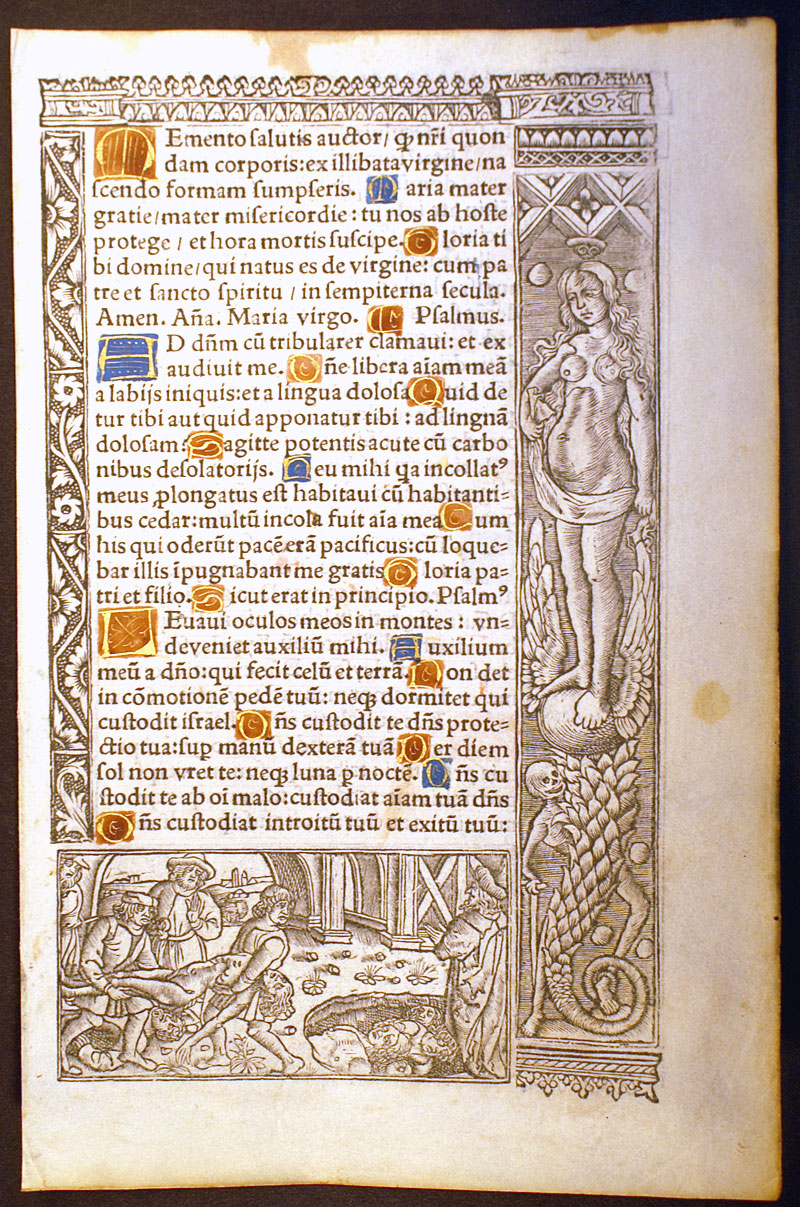 Memento salutis auctor / ꝙ nr̃i quon
dam corporis: ex illibata virgine / na
ſcendo formam ſumpſeris. Maria mater
gratie / mater miſericordie : tu nos ab hoſte
protege / et hora mortis ſuſcipe. Gloria ti
bi domine / qui natus es de virgine: cum pa
tre et ſancto ſpiritu / in ſempiterna ſecula.
Amen. Aña. Maria virgo. Pſalmus.
AD dñm cũ tribularer clamaui: et ex
audiuit me. Dñe libera aĩam meã
a labijs iniquis: et a lingua doloſa Quid de
tur tibi aut quid apponatur tibi : ad lingnã
doloſam? Sagitte potentis acute cũ carbo
nibus deſolatorijs. Heu mihi qa incollatꝰ
meus ꝓlongatus eſt habitaui cũ habitanti=
bus cedar: multũ incola fuit aĩa mea Cum
his qui oderũt pacẽ erã pacificus: cũ loque=
bar illis ĩpugnabant me gratis Gloria pa=
tri et filio. Sicut erat in principio. Pſalmꝰ
LEuaui oculos meos in montes : vn=
de veniet auxiliũ mihi. Auxilium
meũ a dño: qui fecit celũ et terrã. Non det
in cõmotionẽ pedẽ tuũ: neqꝫ dormitet qui
cuſtodit iſrael. Dñs cuſtodit te dñs prote=
ctio tua: ſuꝑ manũ dexterã tuã Per diem
ſol non vret te: neqꝫ luna ꝑ noctẽ. Dñs cu
ſtodit te ab oĩ malo: cuſtodiat aĩam tuã dñs
Dñs cuſtodiat introitũ tuũ et exitũ tuũ: